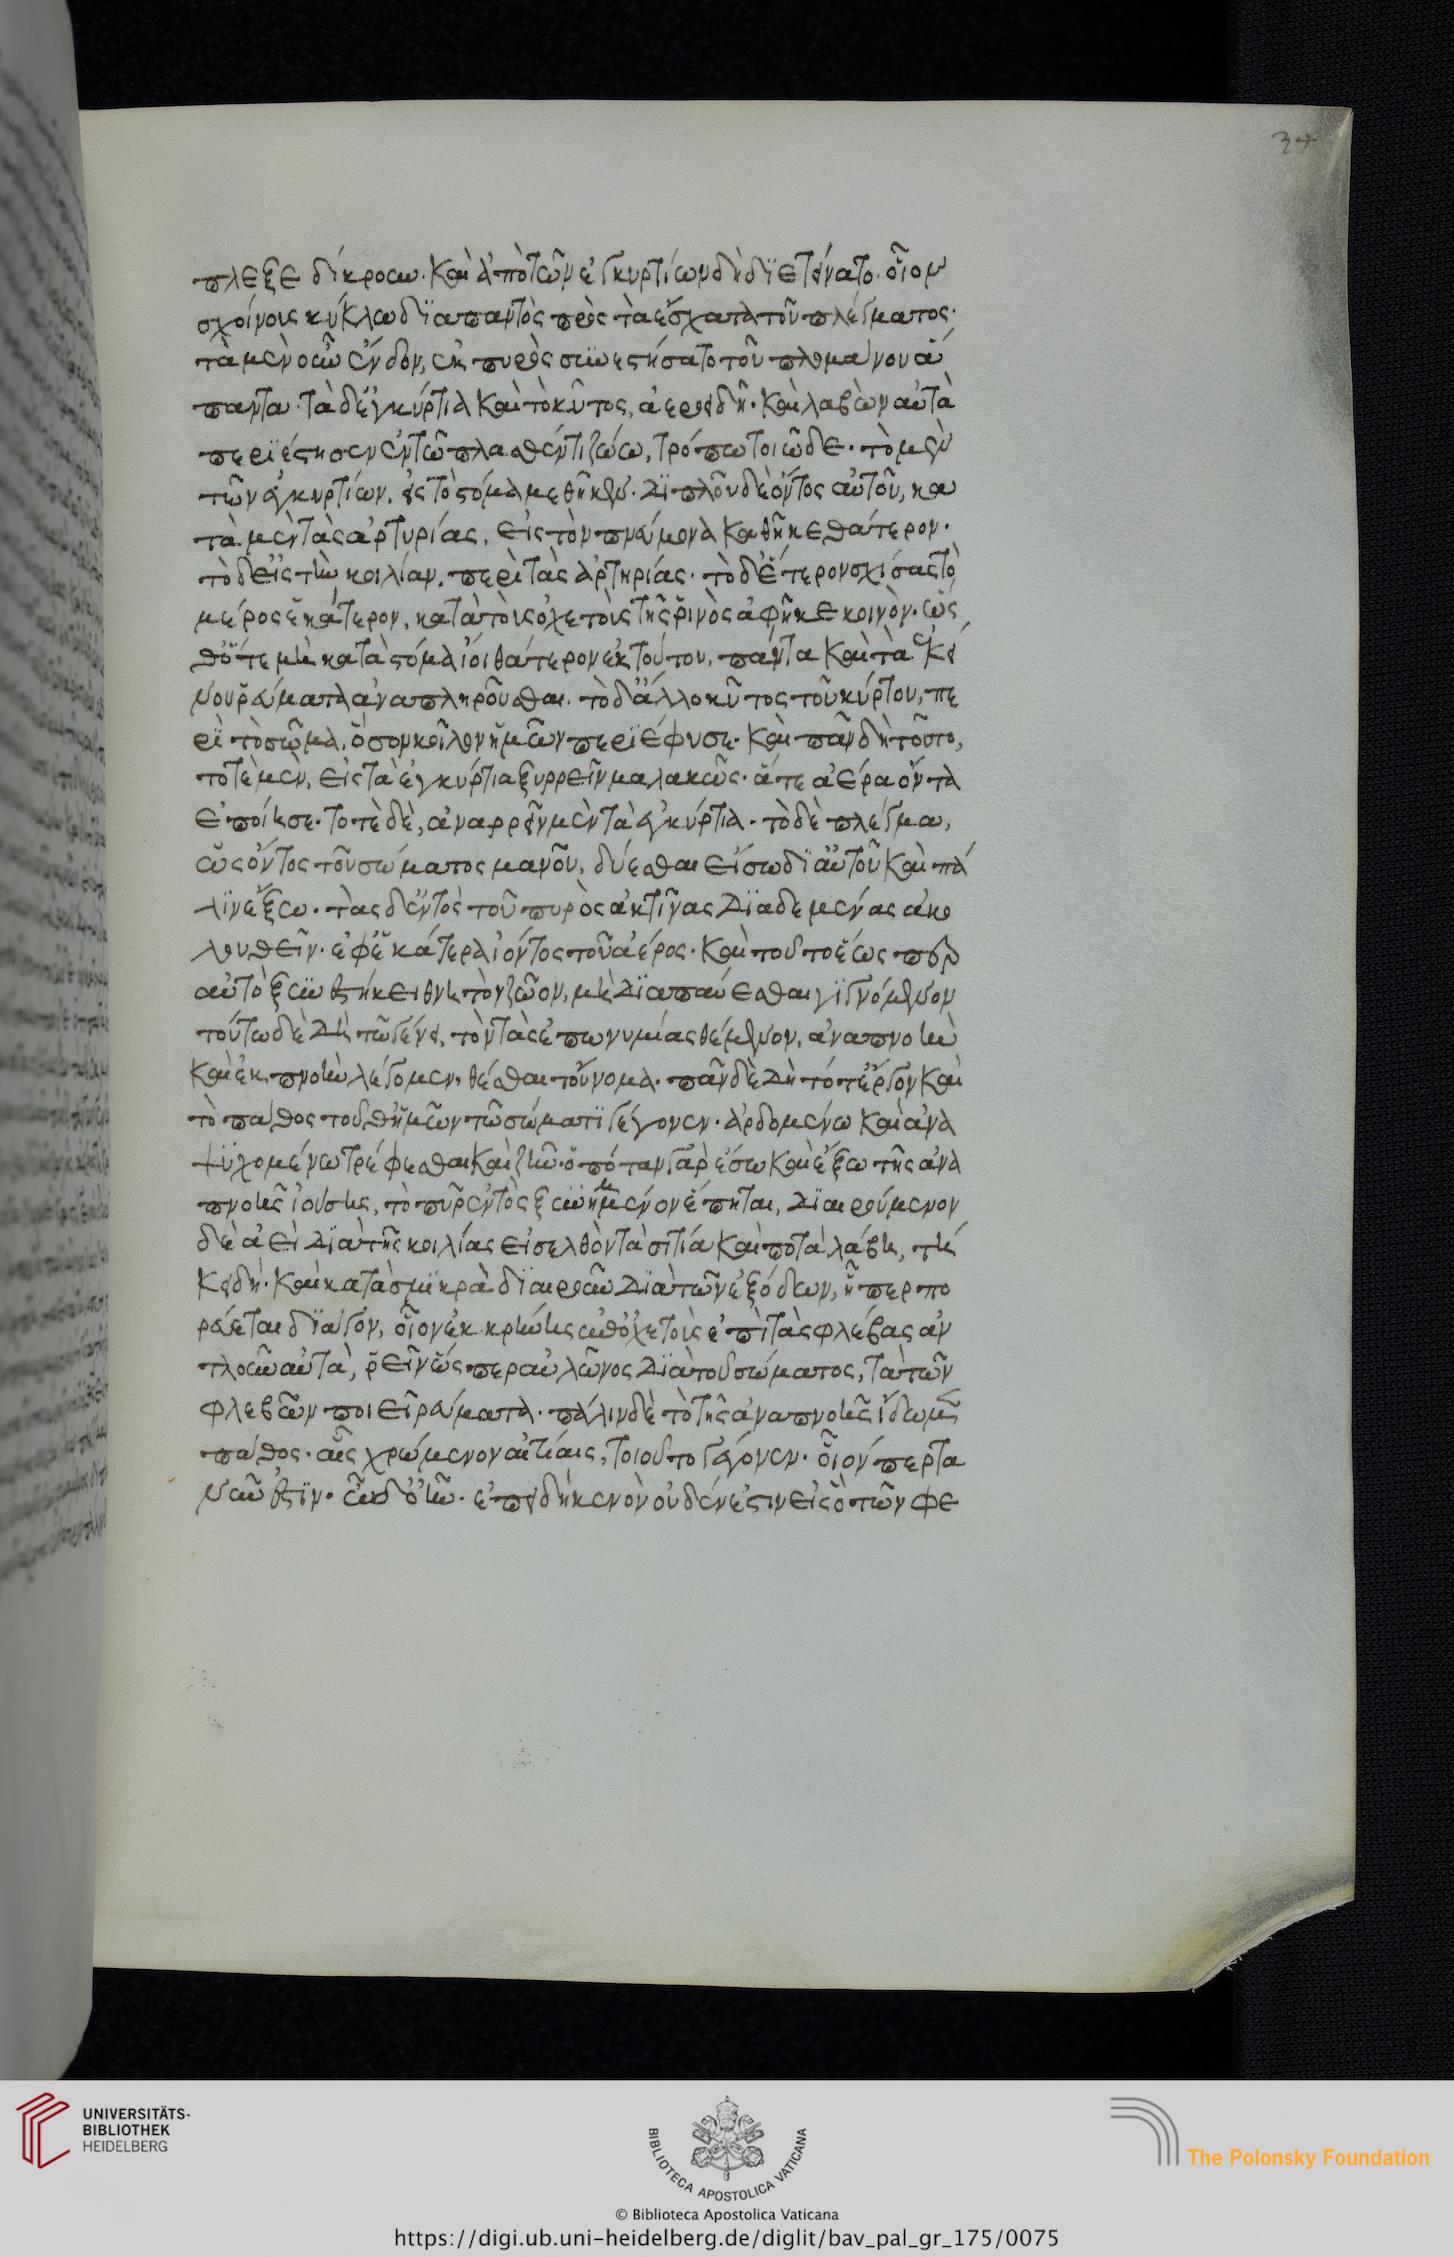 34
πλεξε δίκροων. καὶ ἀπὸ τῶν ἐγκυρτίων δὴ διετείνατο. οἷον
σχοίνους κύκλω διαπαντὸς πρὸς τὰ ἔσχατα τοῦ πλέγματος.
τὰ μὲν οὖν ἔνδον, ἐκ πυρὸς συνεστήσατο τοῦ πλοκάνου ἅ
παντα. τὰ δ' ἐγκύρτια καὶ τὸ κύτος, ἀεροειδῆ. καὶ λαβὼν αὐτὰ
περιέστησεν ἐν τῶ πλασθέντι ζώω, τρόπω τοιῶδε. τὸ μὲν
τῶν ἐγκυρτίων, εἰς τὸ στόμα μεθῆκεν. διπλοῦν δὲ ὄντος αὐτοῦ, κα
τὰ μὲν τὰς ἀρτυρίας, εἰς τὸν πνεύμονα καθῆκε θάτερον.
τὸ δ' εἰς τὴν κοιλίαν, περὶ τὰς ἀρτηρίας. τὸ δ' ἕτερον σχίσας τὸ
μέρος ἑκάτερον, κατὰ τοὺς ὀχετοὺς τῆς ῥινὸς ἀφῆκε κοινὸν. ὥς
θ' ὅτε μὴ κατὰ στόμα ἴοι θάτερον ἐκ τούτου, πάντα καὶ τὰ ἐκεί
νου ῥεύματα ἀναπληροῦσθαι. τὸ δ' ἄλλο κύτος τοῦ κύρτου, πε
ρὶ τὸ σῶμα, ὅσον κοῖλον ἡμῶν περιέφυσε. καὶ πᾶν δὴ τοῦτο,
ποτὲ μὲν, εἰς τὰ ἐγκύρτια ξυρρεῖν μαλακῶς. ἅτε ἀέρα ὄντα
ἐποίησε. τοτὲ δὲ, ἀναρρεῖν μὲν τὰ ἐγκύρτια. τὸ δὲ πλέγμα,
ὡς ὄντος τοῦ σώματος μανοῦ, δύεσθαι εἴσω δι αὐτοῦ καὶ πά
λιν ἔξω. τὰς δ' ἐντὸς τοῦ πυρὸς ἀκτῖνας διαδεμένας ἀκο
λουθεῖν. ἐφ' ἑκάτερα ἰόντος τοῦ ἀέρος. καὶ τοῦτο ἕως περ
αὐτὸ ξυνεστήκει θνητὸν ζῶον, μὴ διαπαύεσθαι γιγνόμενον
τούτω δὲ δὴ τῶ γένει, τὸν τὰς ἐπωνυμίας θέμενον, ἀναπνοὴν
καὶ ἐκπνοὴν λέγομεν, θέσθαι τοὔνομα. πᾶν δὲ δὴ τό τ' ἔργον καὶ
τὸ πάθος τοῦθ' ἡμῶν τῶ σώματι γέγονεν. ἀρδομένω καὶ ἀνα
ψυχομένω τρέφεσθαι καὶ ζῆν. ὁπόταν γὰρ ἔσω καὶ ἔξω τῆς ἀνα
πνοῆς ἰούσης, τὸ πῦρ ἐντὸς ξυνημμένον ἕπηται, διαιρούμενον
δὲ ἀεὶ διὰ τῆς κοιλίας εἰσελθὸν τὰ σιτία καὶ ποτὰ λάβη, τή
κει δή. καὶ κατὰ σμικρὰ διαιροῦν διὰ τῶν ἐξόδων, ἧπερ πο
ρεύεται διάγον, οἷον ἐκ κρήνης ἐπ' ὀχετοὺς ἐπὶ τὰς φλέβας ἀν
τλοῦν αὐτὰ, ῥεῖν ὥσπερ αὐλῶνος διὰ τοῦ σώματος, τὰ τῶν
φλεβῶν ποιεῖ ῥεύματα. πάλιν δὲ τὸ τῆς ἀναπνοῆς ἴδωμεν
πάθος. αἷς χρώμενον αἰτίαις, τοιοῦτο γέγονεν. οἷόνπερ τὰ
νῦν ἐστιν. ὧδ' οὖν. ἐπειδὴ κενὸν οὐδέν ἐστιν εἰς ὃ τῶν φε
UNIVERSITÄTS-
BIBLIOTHEK
HEIDELBERG
BIBLIOTECA APOSTOLICA VATICANA
The Polonsky Foundation
© Biblioteca Apostolica Vaticana
https://digi.ub.uni-heidelberg.de/diglit/bav_pal_gr_175/0075